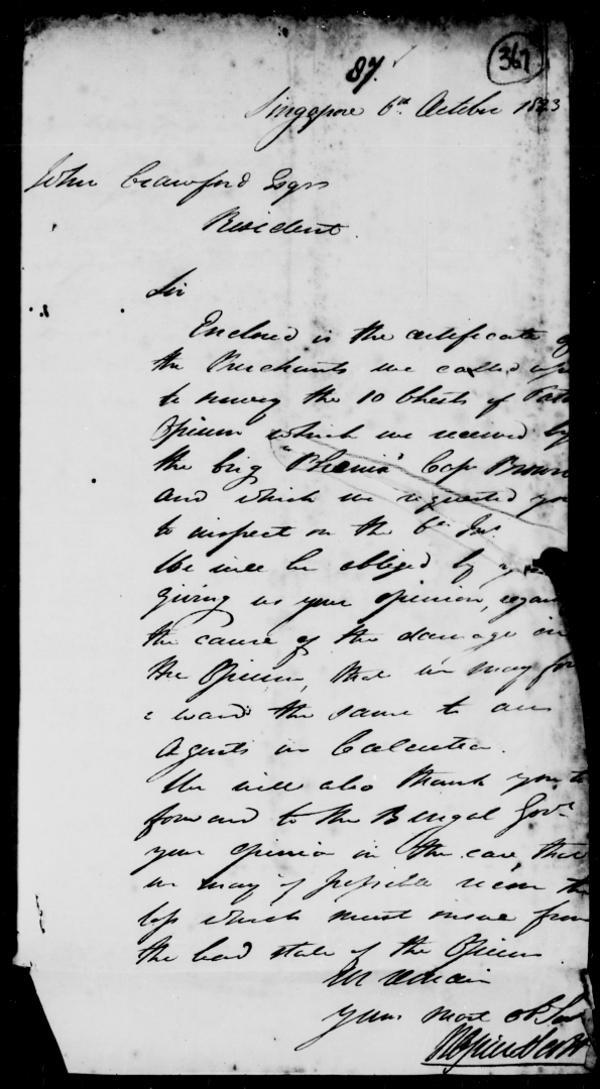 367
87.
Singapore 6th October 1823
John Crawford Esqr
Resident
Sir
Enclosed is the certificate of
the Merchants we called upon
to survey the 10 Chests of Patn
Opium which we received by
the brig "Phenix" Capt Brown
and which we requested yo
to inspect on the 6th Inst
We will be obliged by your
giving us your opinion, regard
the cause of the damage in
the Opium, that we may for
ward the same to our
Agents in Calcutta.
We will also thank you to
forward to the Bengal Govt
your opinion in the case, that
we may if possible the
loss which must from
the bad state of the Opium
We remain
your most ob Ser